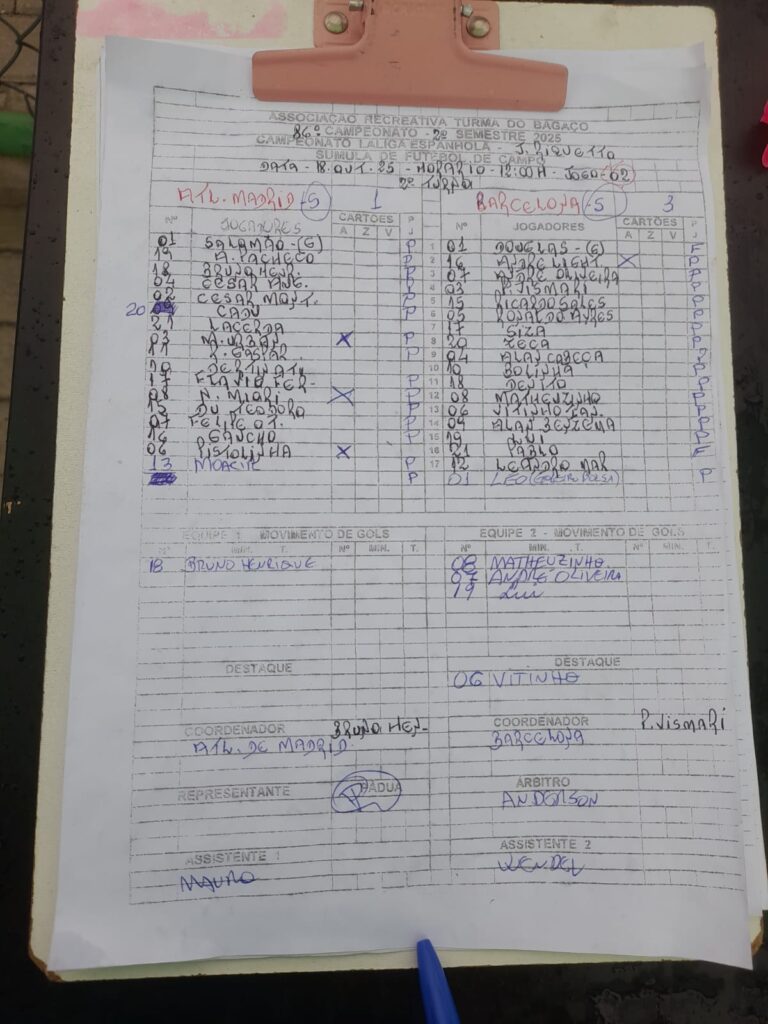 ASSOCIAÇÃO RECREATIVA TURMA DO BAGAÇO
86º CAMPEONATO - 2º SEMESTRE 2025
CAMPEONATO LALIGA ESPANHOLA - J. PIQUETTO
SÚMULA DE FUTEBOL DE CAMPO
DATA - 18.OUT.25 - HORÁRIO - 12:00H - JOGO - 02
2º TURNO
ATL. MADRID - 5 1 BARCELONA - 5 3
Nº JOGADORES CARTÕES P Nº JOGADORES CARTÕES P
A Z V J A Z V J
01 SALAMÃO - (G) P 1 01 DOUGLAS - (G) F
19 A. PACHECO P 2 16 ANDRE LIGHT. X P
18 BRUNO HENR. P 3 07 ANDRE OLIVEIRA P
04 CESAR AUG. P 4 03 P. VISMARI P
02 CESAR MONT. P 5 15 RICARDO SALES P
20 CADU P 6 05 RONALDO AYRES P
21 LACERDA 7 17 SIZA P
03 M. URBAN X P 8 20 ZECA P
11 R. GASPAR P 9 04 ALAN CABEÇA P
10 BERTINATI 10 10 BOLINHA
17 FLAVIO FER- P 11 18 DENITO P
08 N. MIORI X P 12 08 MATHEUZINHO P
15 DU TEODORO P 13 06 VITINHO P
07 FELIPE OT. P 14 09 ALAN BENZEMA P
16 GANCHO P 15 19 LUI P
06 PISTOLINHA X 16 21 PABLO F
13 MOACIR P 17 12 LEANDRO MAR P
P 01 LEO (GOLEIRO BOLSA) P
EQUIPE 1 MOVIMENTO DE GOLS EQUIPE 2 - MOVIMENTO DE GOLS
Nº MIN. T. Nº MIN. T. Nº MIN. T. Nº MIN. T.
18 BRUNO HENRIQUE 08 MATHEUZINHO
07 ANDRÉ OLIVEIRA
19 Lui
DESTAQUE DESTAQUE
06 VITINHO
COORDENADOR BRUNO HEN- COORDENADOR P. VISMARI
ATL. DE MADRID. BARCELONA
REPRESENTANTE PÁDUA ÁRBITRO
ANDERSON
ASSISTENTE 1 ASSISTENTE 2
MAURO WENDEL